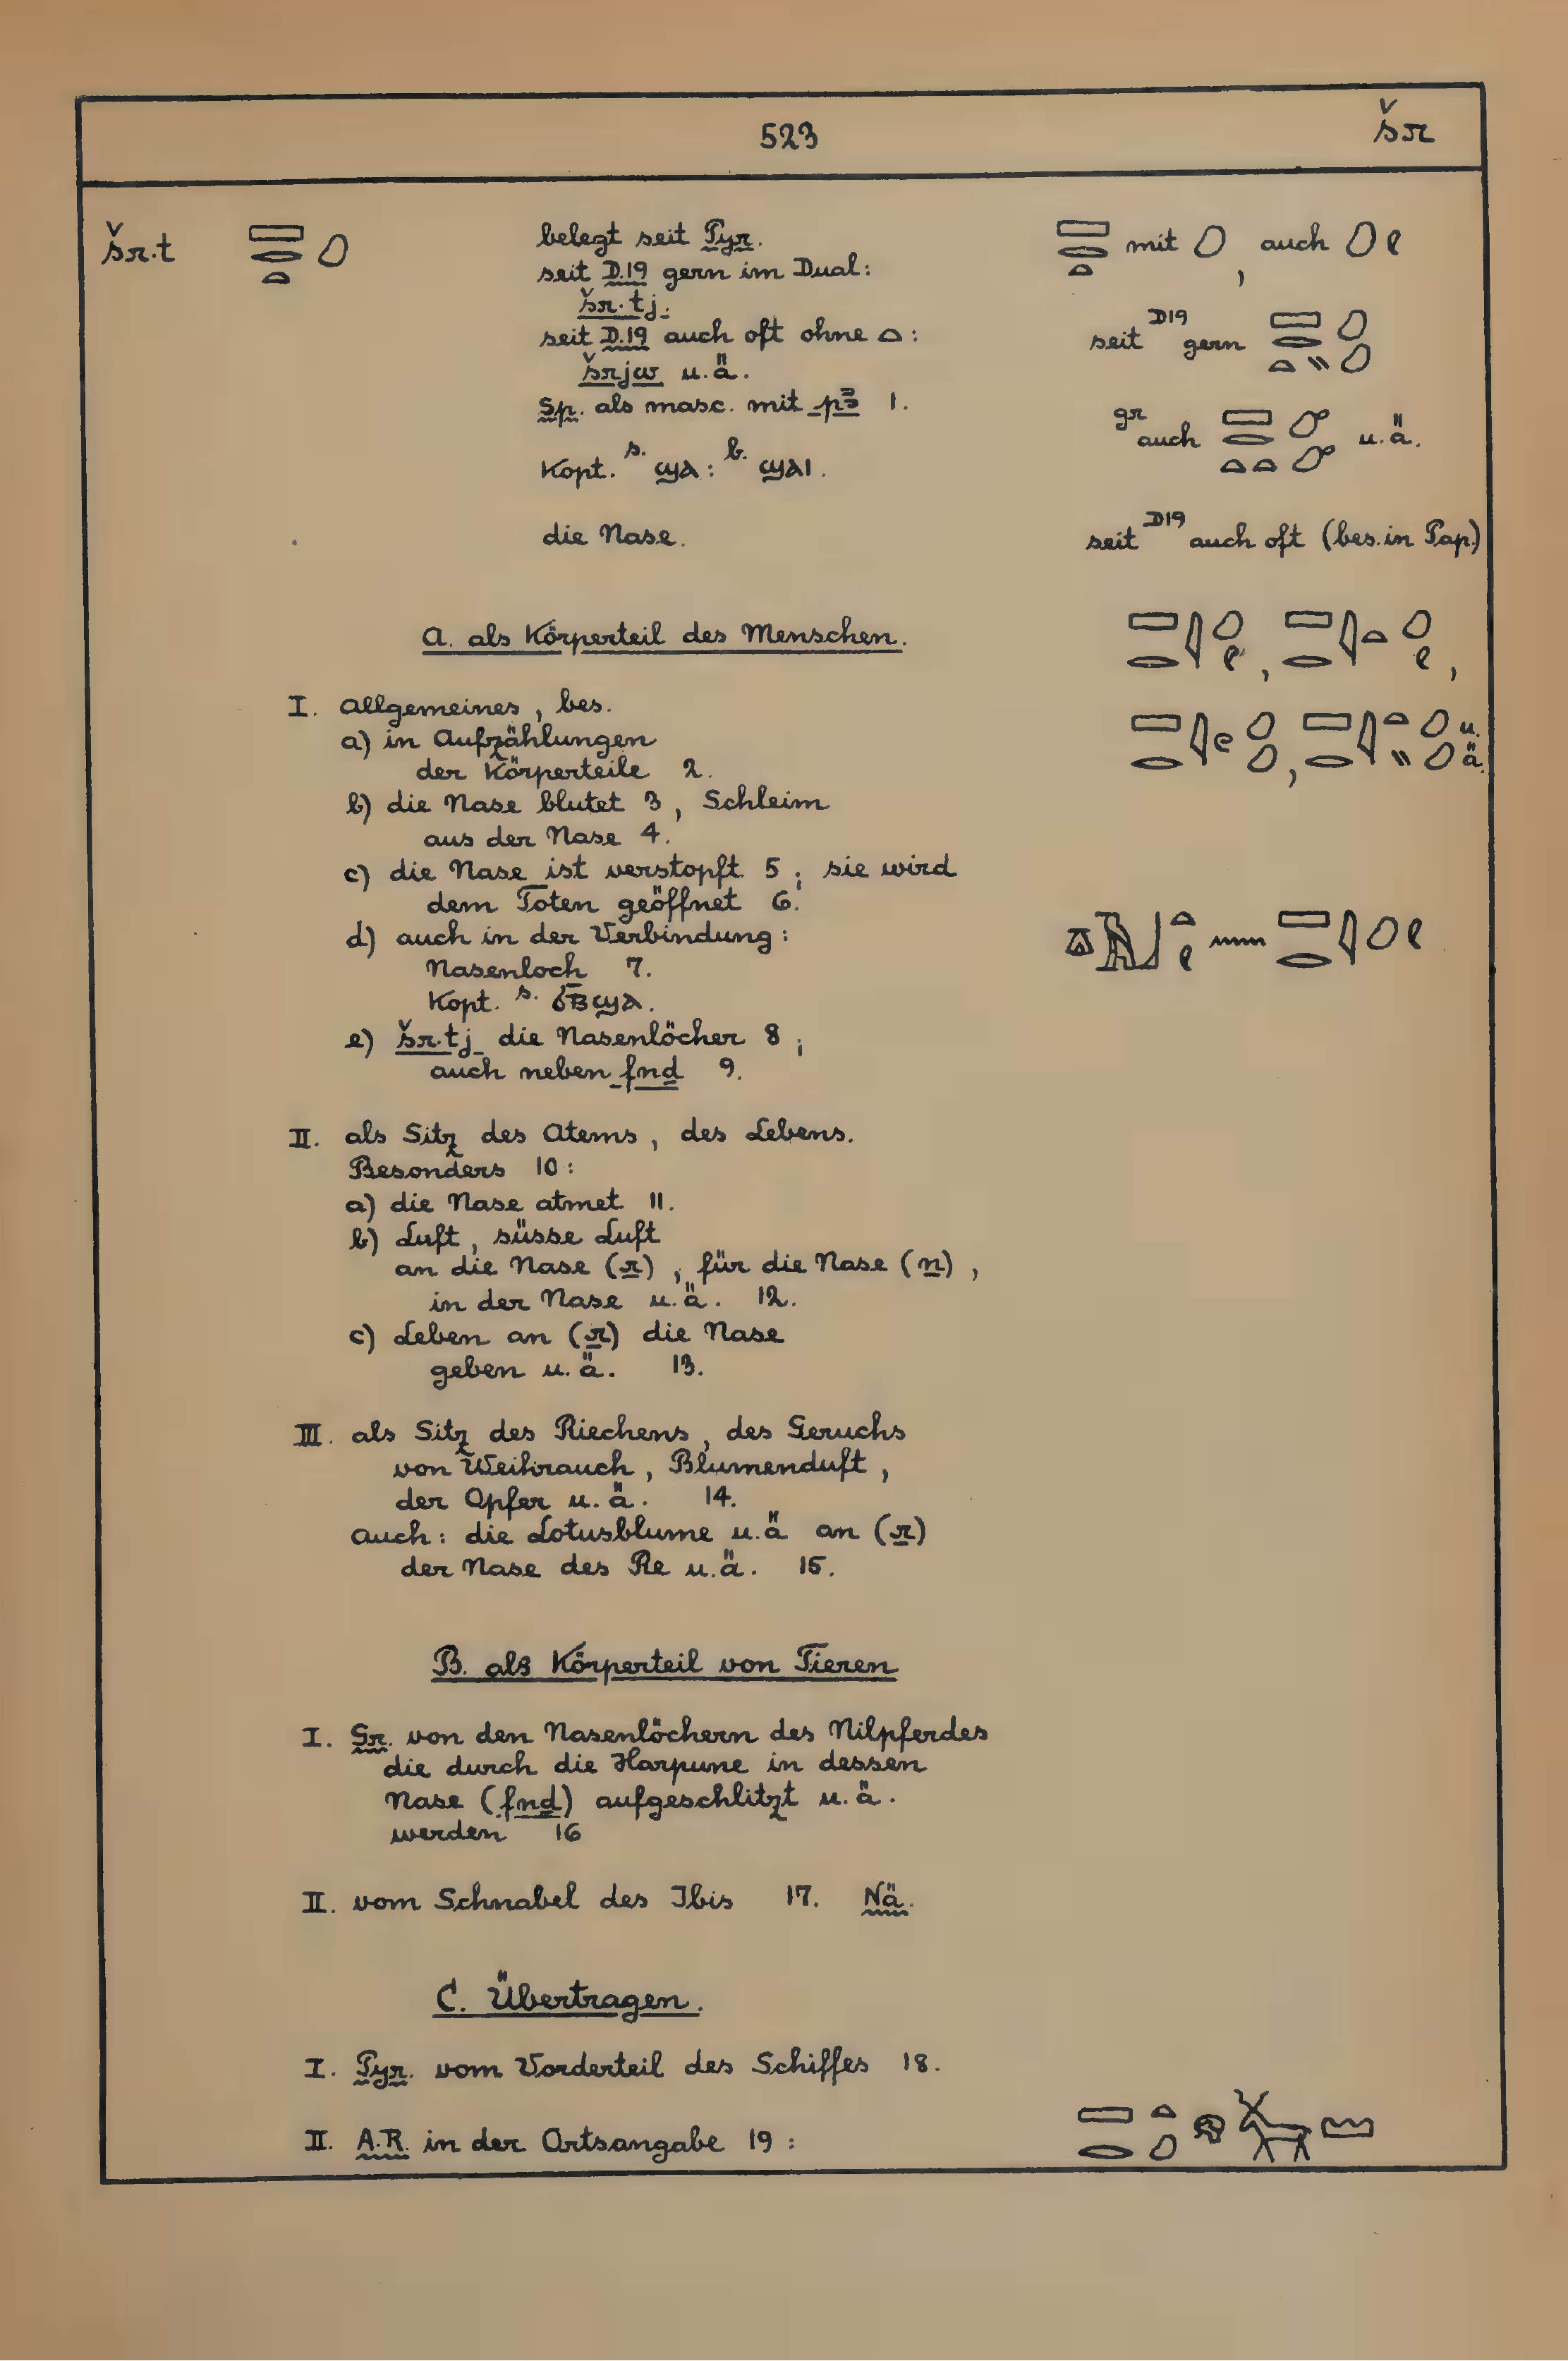 523
šr
šr.t
belegt seit Pyr.
seit D.19 gern im Dual:
šr.tj.
seit D.19 auch oft ohne 𓏏:
šrjw u.ä.
Sp. als masc. mit pꜣ 1.
Kopt. s. ϣⲁ : b. ϣⲁⲓ.
die Nase.
mit , auch
seit D19 gern
gr auch u.ä.
seit D19 auch oft (bes. in Pap.)
u.ä.
A. als Körperteil des Menschen.
I. Allgemeines, bes.
a) in Aufzählungen
der Körperteile 2.
b) die Nase blutet 3, Schleim
aus der Nase 4.
c) die Nase ist verstopft 5; sie wird
dem Toten geöffnet 6.
d) auch in der Verbindung:
Nasenloch 7.
Kopt. s. ϭⲃ̅ϣⲁ.
e) šr.tj die Nasenlöcher 8;
auch neben fnḏ 9.
II. als Sitz des Atems, des Lebens.
Besonders 10:
a) die Nase atmet 11.
b) Luft, süsse Luft
an die Nase (r), für die Nase (n),
in der Nase u.ä. 12.
c) Leben an (r) die Nase
geben u.ä. 13.
III. als Sitz des Riechens, des Geruchs
von Weihrauch, Blumenduft,
der Opfer u.ä. 14.
Auch: die Lotusblume u.ä an (r)
der Nase des Re u.ä. 15.
B. als Körperteil von Tieren
I. Gr. von den Nasenlöchern des Nilpferdes
die durch die Harpune in dessen
Nase (fnḏ) aufgeschlitzt u.ä.
werden 16
II. vom Schnabel des Ibis 17. Nä.
C. Übertragen.
I. Pyr. vom Vorderteil des Schiffes 18.
II. A.R. in der Ortsangabe 19: